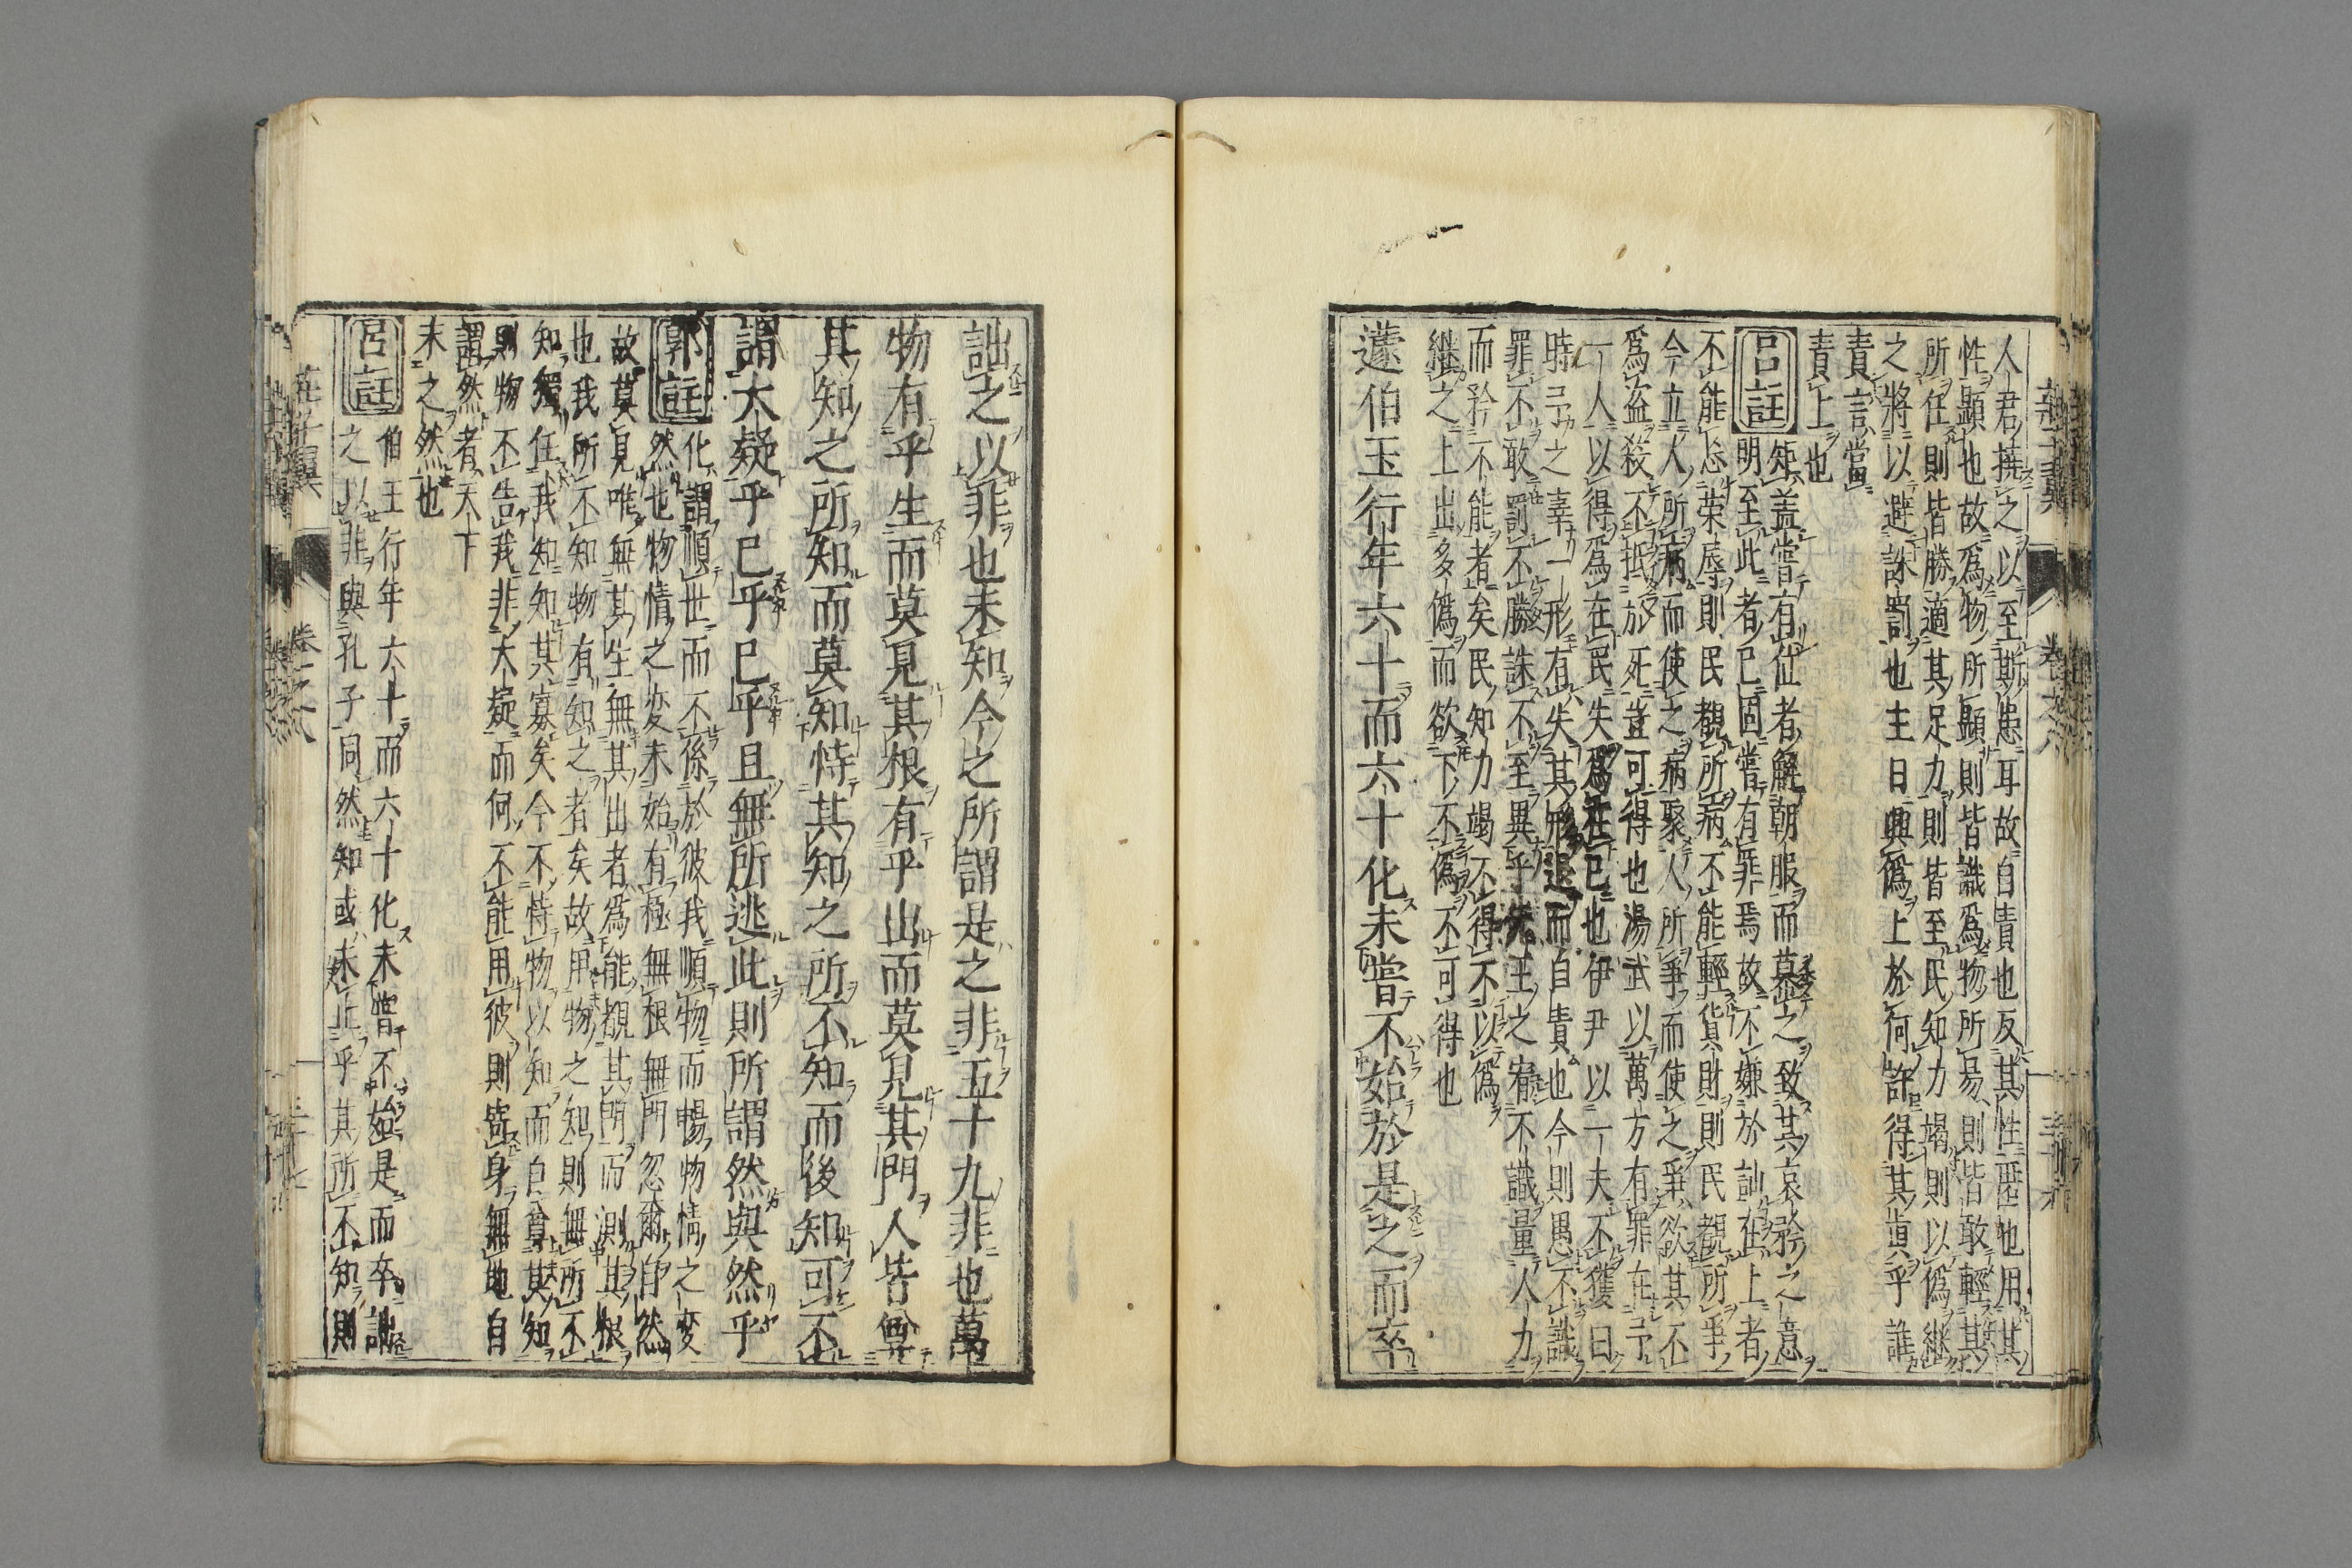 人君撓之以至斯患耳故自責也反其性匿也用其
性顯也故爲物所顯則皆識爲物所易則皆敢輕其
所任則皆勝適其足力則皆至民知力竭則以僞継
之將以避誅罰也主日興僞上於何許得其眞乎誰
責言當
責上也
呂註
矩盖嘗有仕者解朝服而慕之致其哀矜之意
明至此者已固嘗有罪焉故不嫌於訕在上者
不能忘荣辱則民覩所病不能輕貨財則民覩所爭
今立人所病而使之病聚人所爭而使之爭欲其不
爲盗殺不抵於死豈可得也湯武以萬方有罪在予
一人以得爲在民失爲在已也伊尹以一夫不獲曰
時予之辜一形有失其形退而自責也今則愚不識
罪不敢罰不勝誅不至異乎先王之宥不識量人力
而矜不能者矣民知力竭不得不以僞
継之上出多僞而欲下不僞不可得也
蘧伯玉行年六十而六十化未嘗不始於是之而卒
詘之以非也未知今之所謂是之非五十九非也萬
物有乎生而莫見其根有乎出而莫見其門人皆尊
其知之所知而莫知恃其知之所不知而後知可不
謂大疑乎已乎已乎且無所逃此則所謂然與然乎
郭註
化謂順世而不係於彼我順物而暢物情之变
然也物情之変未始有極無根無門忽爾自然
故莫見唯無其生無其出者爲能覩其門而測其根
也我所不知物有知之者矣故用物之知則無所不
知獨任我知知其寡矣今不恃物以知而自尊其知
則物不告我非大疑而何不能用彼則寄身無地自
謂然者天下
未之然也
呂註
伯玉行年六十而六十化未嘗不始是而卒詘
之以非與孔子同然知或未止乎其所不知則
莊子翼
卷之八